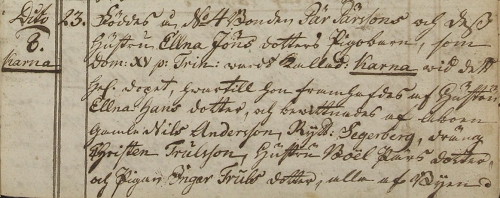 Dito 23. Föddes u. No 4 Bonden Pär Pärssons och dess
8. Hustru Ellna Jöns dotters Pigobarn, som
Karna Dom: XV p: Trin: wards kallad: Karna wid dess
hel: dopet, hwartill hon framhafdes af Hustru
Ellna Hans dotter, och bewittnades af Åboen
gamla Nils Andersson, Rydt: Segerberg, dräng
Christen Trulsson, Hustru Boël Pärs dotter
och Pigan Ingar Truls dotter, alla af Byen